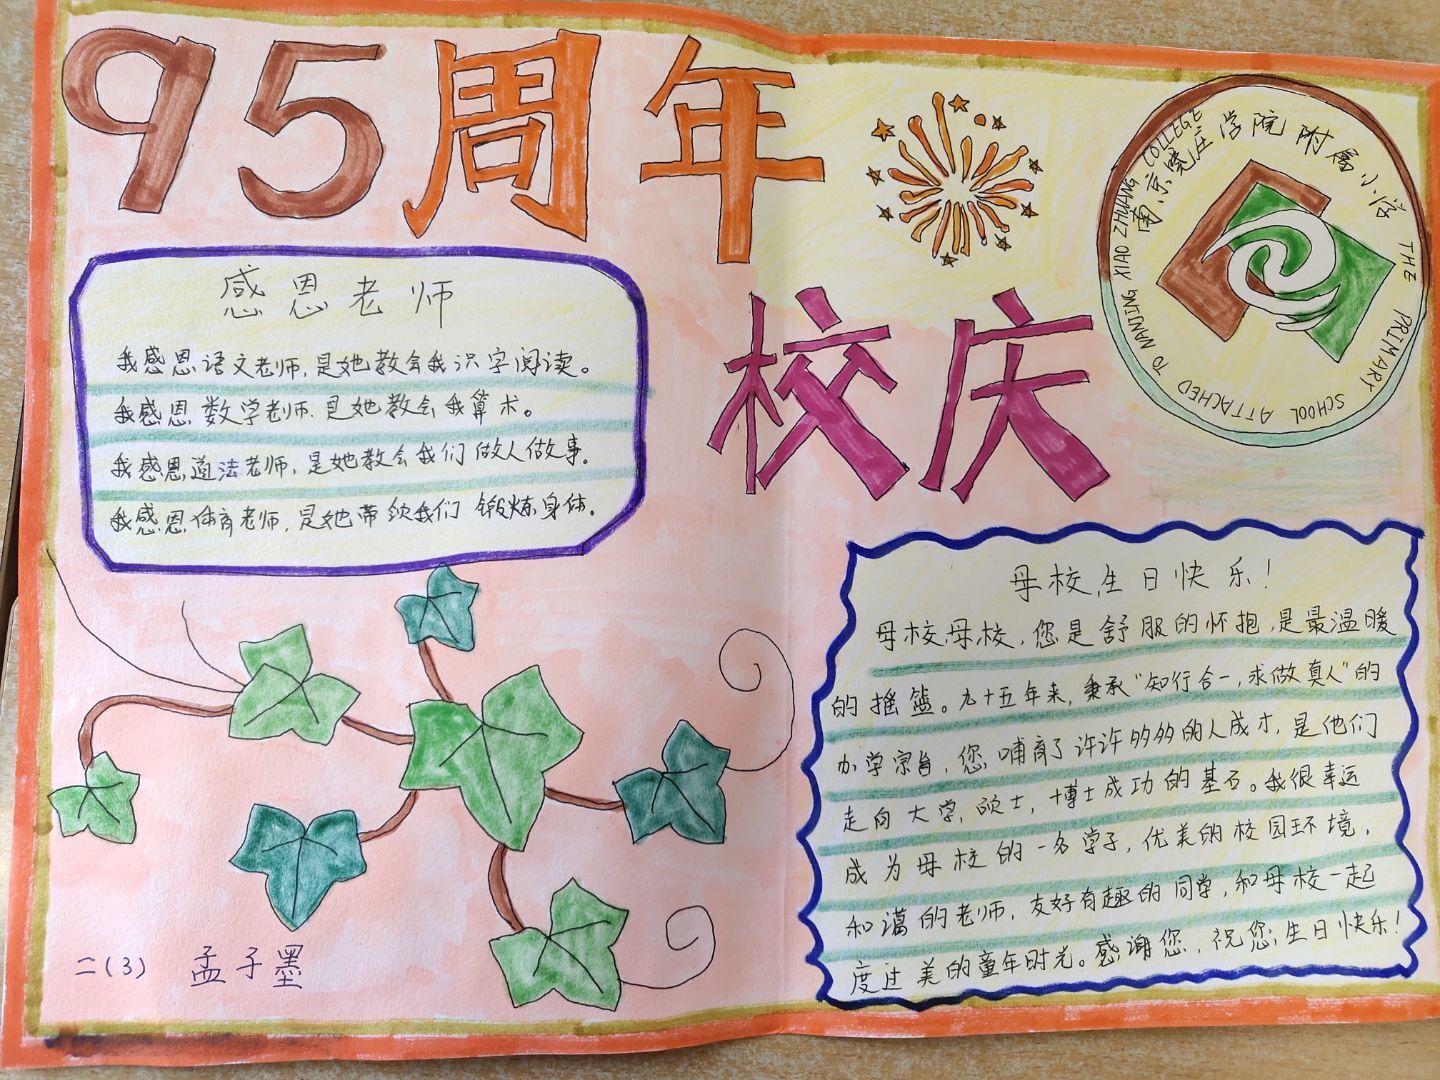 95周年
校庆
南京晓庄学院附属小学
THE PRIMARY SCHOOL ATTACHED TO NANJING XIAO ZHUANG COLLEGE
感恩老师
我感恩语文老师,是她教会我识字阅读。
我感恩数学老师.是她教会我算术。
我感恩道法老师,是她教会我们做人做事.
我感恩体育老师,是她带领我们锻炼身体.
母校生日快乐!
母校母校,您是舒服的怀抱,是最温暖
的摇篮。九十五年来,秉承"知行合一,求做真人"的
办学宗旨,您哺育了许许多多的人成才,是他们
走向大学,硕士,博士成功的基石。我很幸运
成为母校的一名学子,优美的校园环境,
和蔼的老师,友好有趣的同学,和母校一起
度过美的童年时光。感谢您,祝您生日快乐!
二(3) 孟子墨